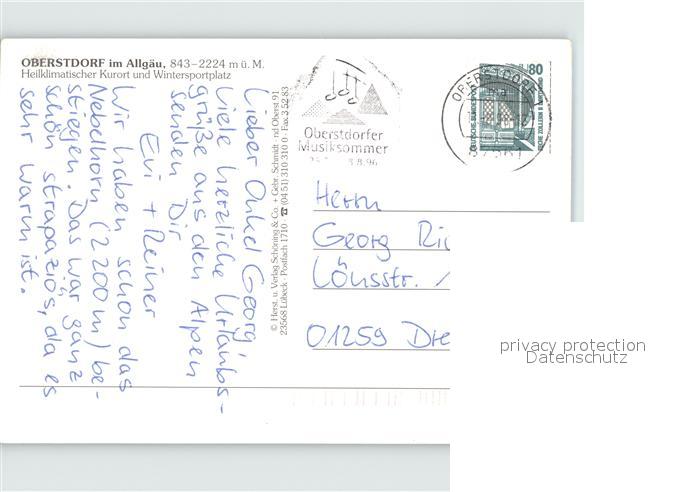 OBERSTDORF im Allgäu, 843–2224 m ü. M.
Heilklimatischer Kurort und Wintersportplatz
Lieber Onkel Georg!
Viele herzliche Urlaubs-
grüße aus den Alpen
senden Dir
Evi + Reiner
Wir haben schon das
Nebelhorn (2200m) be-
stiegen. Das war ganz
schön strapaziös, da es
sehr warm ist.
© Herst. u. Verlag Schöning & Co. + Gebr. Schmidt
23568 Lübeck · Postfach 1710 · ☎ (04 51) 310 310 · Fax 3 52 83
Oberstdorfer
Musiksommer
8.8.96
OBERSTDORF
80
DEUTSCHE BUNDESPOST
Herrn
Georg
Lönsstr.
01259
privacy protection
Datenschutz